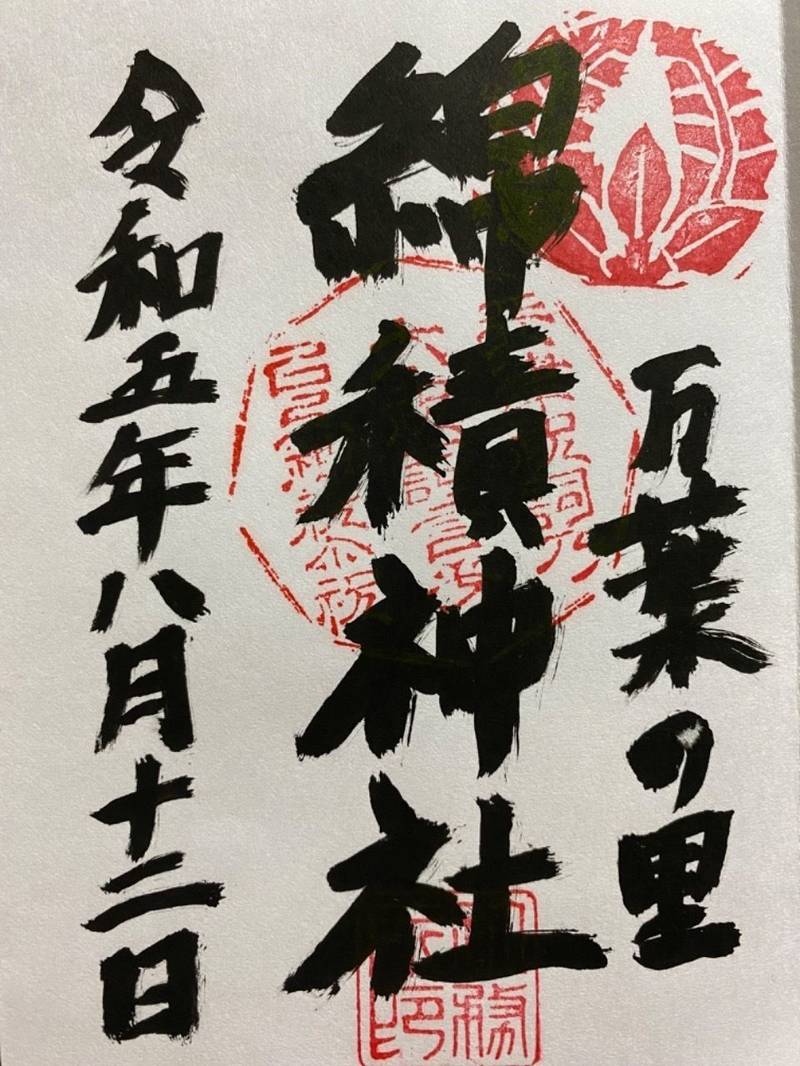 万葉の里
綿積神社
令和五年八月十二日